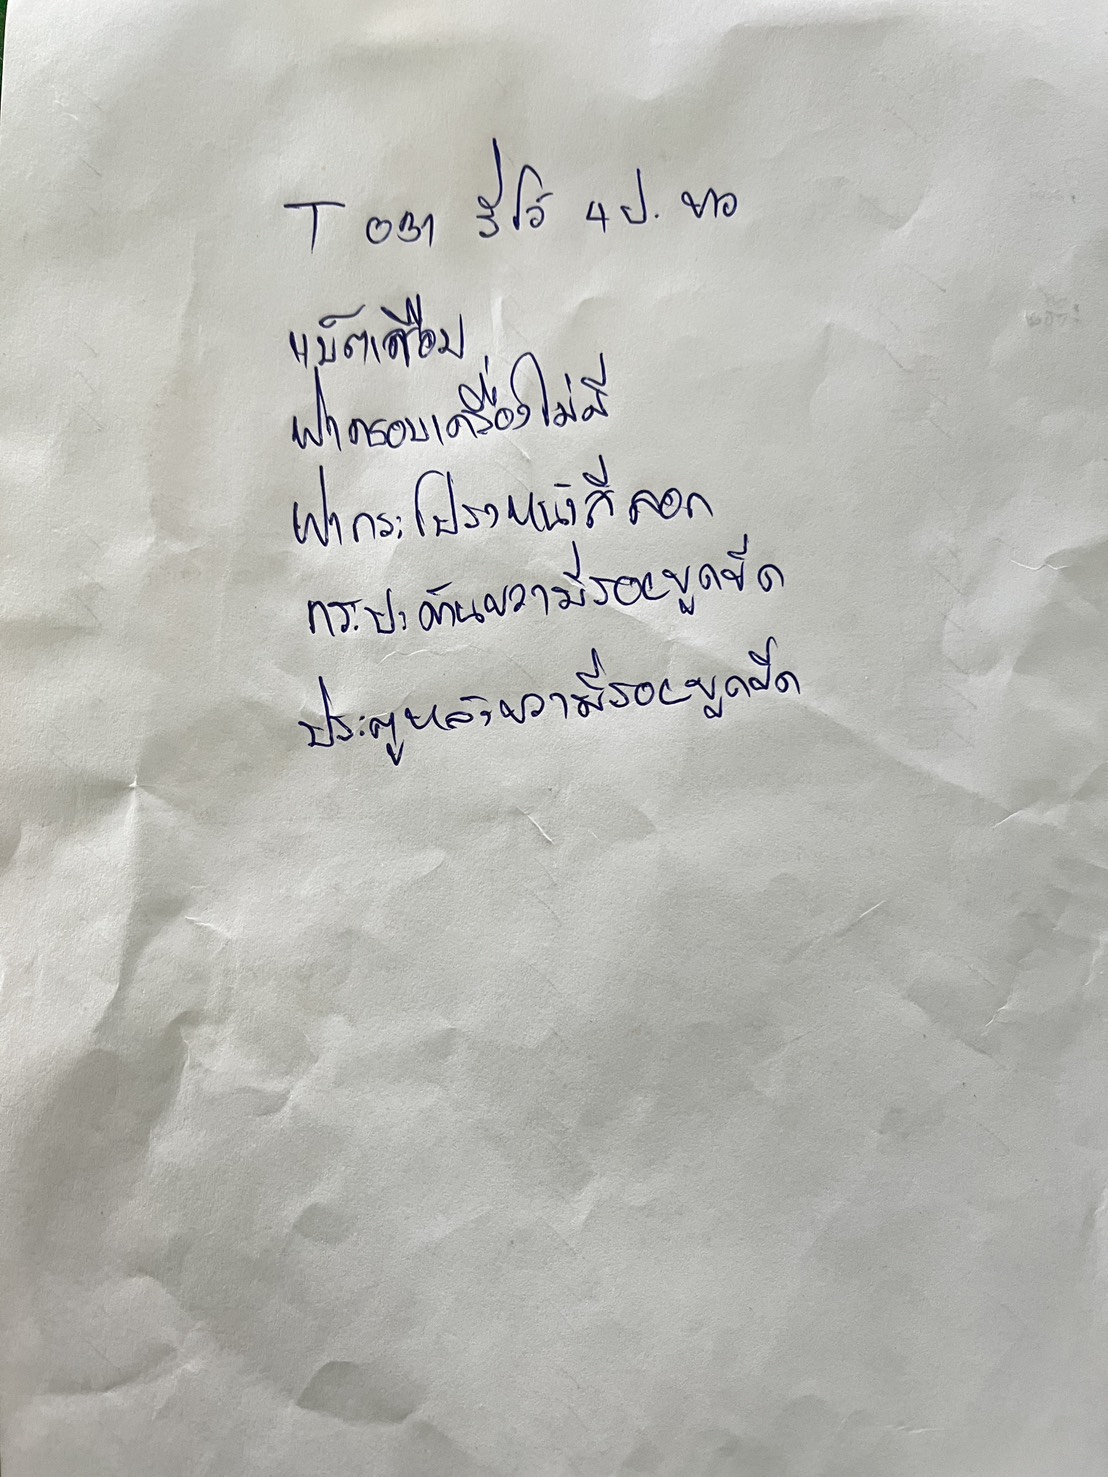 T ๐๓๑ รีโว่ 4 ป. ขาว
แบ็ตเตือม
ฝาครอบเครื่องไม่มี
ฝากระโปรงหน้าสีลอก
กระบะด้านขวามีรอยขูดขีด
ประตูหลังขวามีรอยขูดขีด